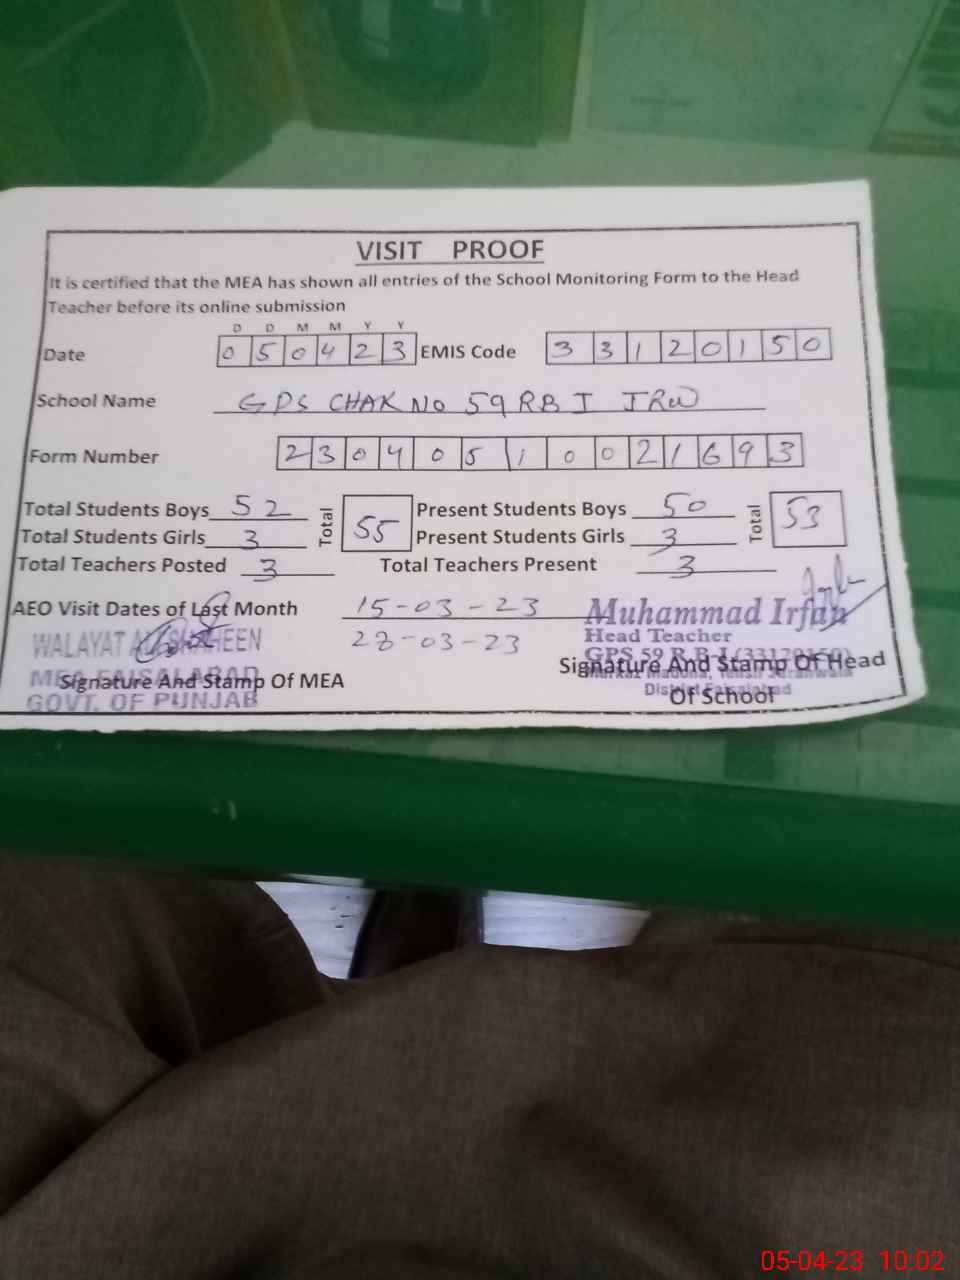 VISIT PROOF
It is certified that the MEA has shown all entries of the School Monitoring Form to the Head
Teacher before its online submission
D D M M Y Y
Date 0 5 0 4 2 3 EMIS Code 3 3 1 2 0 1 5 0
School Name GPS CHAK NO 59 RB I JRW
Form Number 2 3 0 4 0 5 1 0 0 2 1 6 9 3
Total Students Boys 52 Total 55 Present Students Boys 50 Total 53
Total Students Girls 3 Present Students Girls 3
Total Teachers Posted 3 Total Teachers Present 3
AEO Visit Dates of Last Month 15-03-23
28-03-23
Muhammad Irfan
Head Teacher
GPS 59 R.B-I (33120150)
Tehsil Jaranwala
District Faisalabad
Signature And Stamp Of Head
Of School
WALAYAT ALI SHAHEEN
MEA FAISALABAD
GOVT. OF PUNJAB
Signature And Stamp Of MEA
05-04-23 10:02